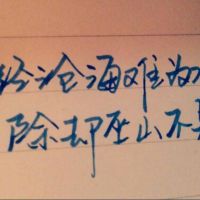 经沧海难为
除却巫山不